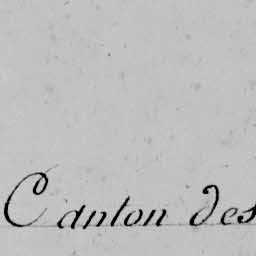 Canton des